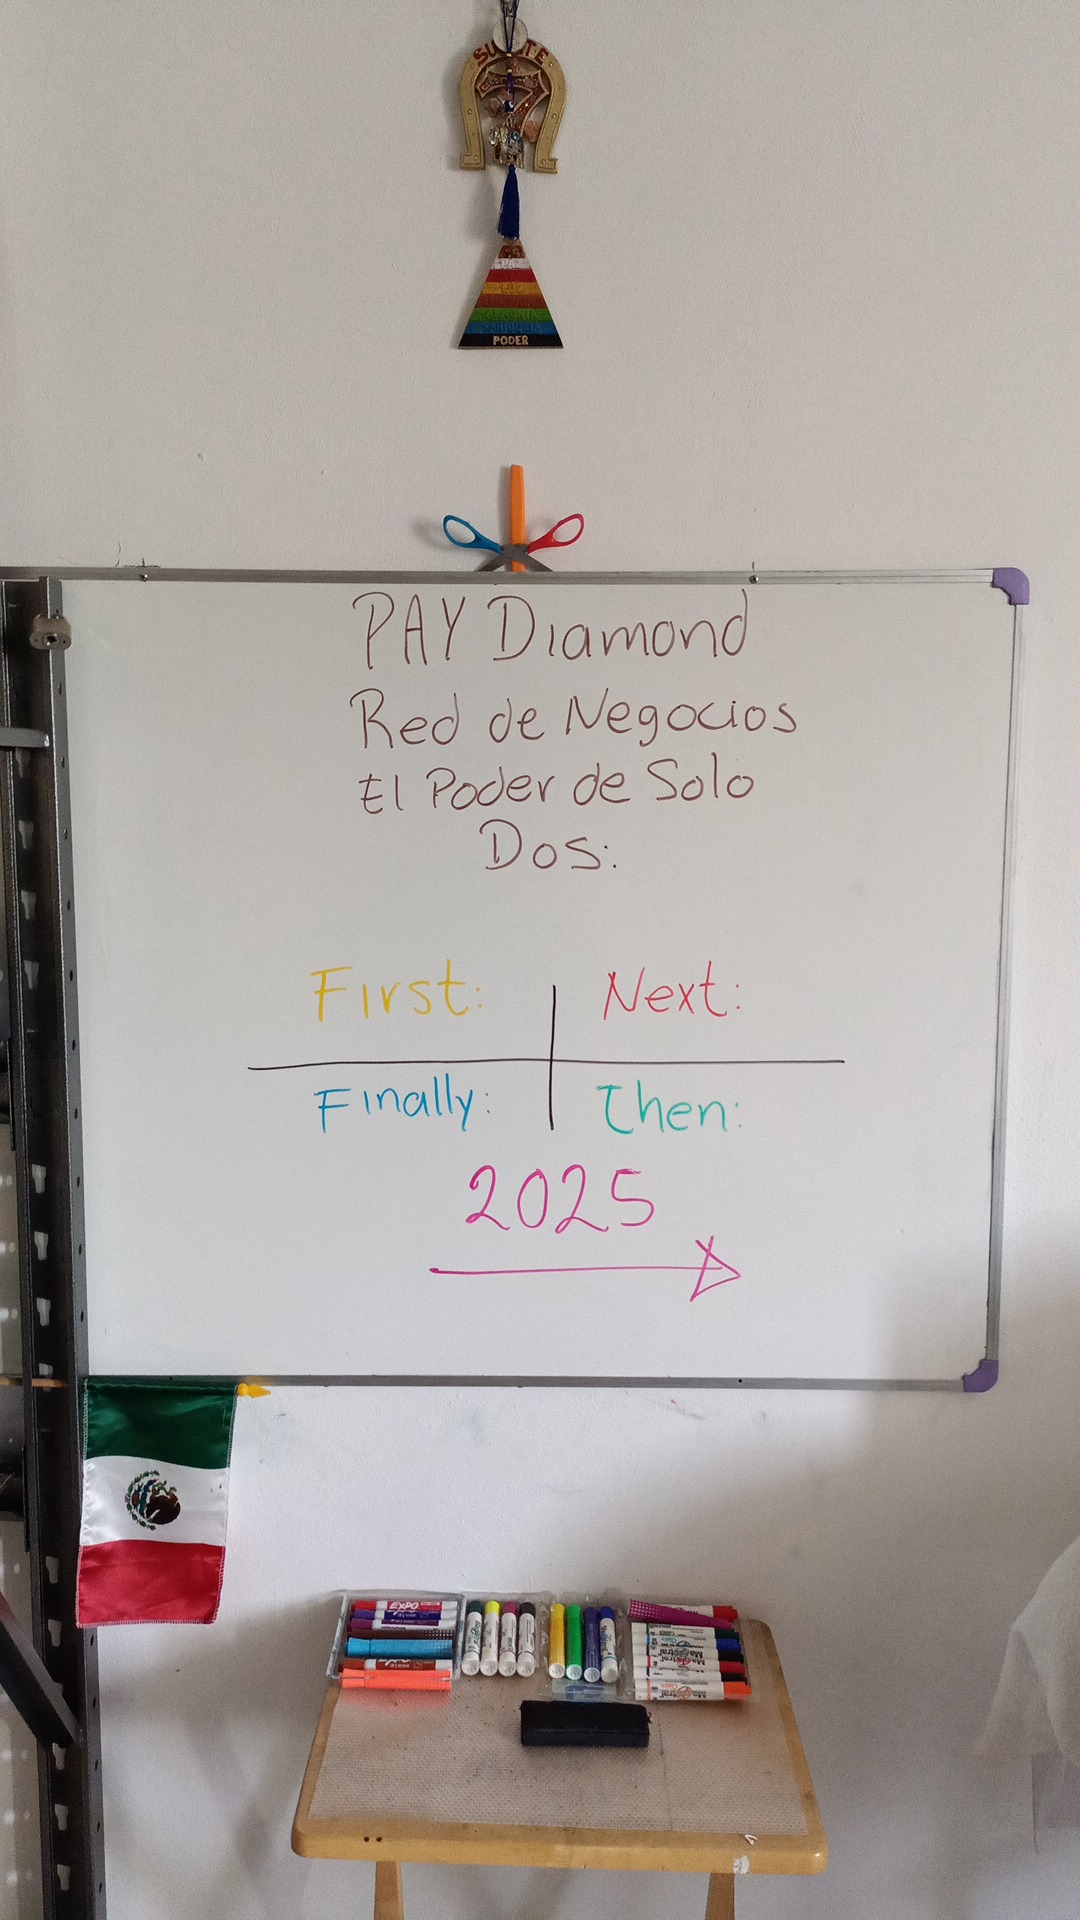 SUERTE
7
PODER
PAY Diamond
Red de Negocios
El Poder de Solo
Dos:
First:
Next:
Finally:
Then:
2025
EXPO
Magistral
Magistral